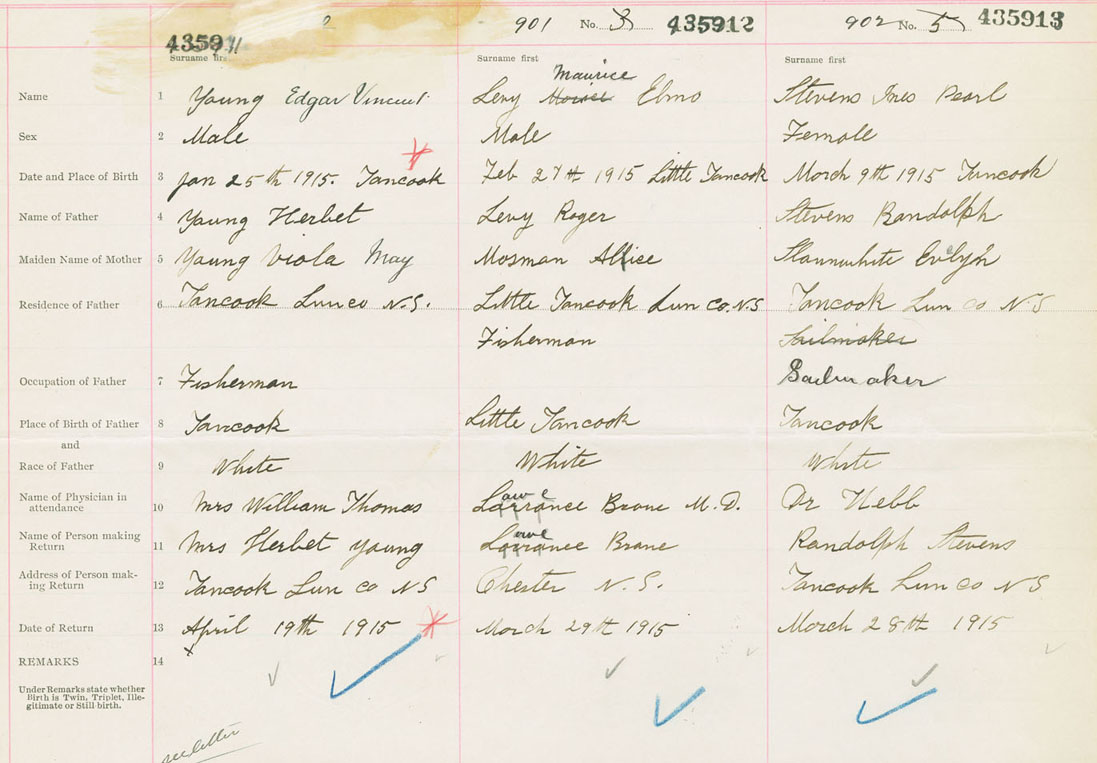 2 901 No. 3 435912 902 No. 5 435913
43591
Surname first Surname first Surname first
Maurice
Name 1 Young Edgar Vincent Levy Elmo Stevens Ines Pearl
Sex 2 Male Male Female
Date and Place of Birth 3 Jan 25th 1915. Tancook Feb 27th 1915 Little Tancook March 9th 1915 Tancook
Name of Father 4 Young Herbet Levy Roger Stevens Randolph
Maiden Name of Mother 5 Young Viola May Mosman Allice Stannwhite Evelyn
Residence of Father 6 Tancook Lun co N.S. Little Tancook Lun Co. N.S Tancook Lun co N.S
Fisherman Sailmaker
Occupation of Father 7 Fisherman Sailmaker
Place of Birth of Father 8 Tancook Little Tancook Tancook
and
Race of Father 9 White White White
Name of Physician in
attendance 10 Mrs William Thomas Lawrence M.D. Dr Hebb
Name of Person making
Return 11 Mrs Herbet Young Lawrence Randolph Stevens
Address of Person mak-
ing Return 12 Tancook Lun co N S Chester N.S. Tancook Lun co N S
Date of Return 13 April 19th 1915 March 29th 1915 March 28th 1915
REMARKS 14
Under Remarks state whether
Birth is Twin, Triplet, Ille-
gitimate or Still birth.
see letter